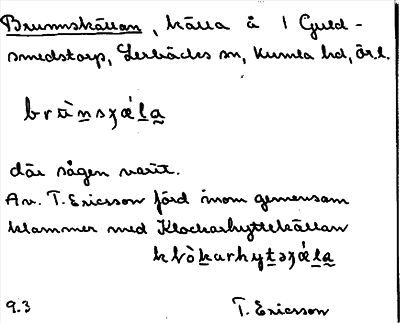 Brunnskällan, källa å 1 Guld-
smedstorp, Lerbäcks sn, Kumla hd, Ör.l.
brùnsȥǽla
där sågen varit.
Av. T. Ericsson förd inom gemensam
klammer med Klockarhyttekällan
klòkarhytəȥǽla
9.3 T. Ericsson